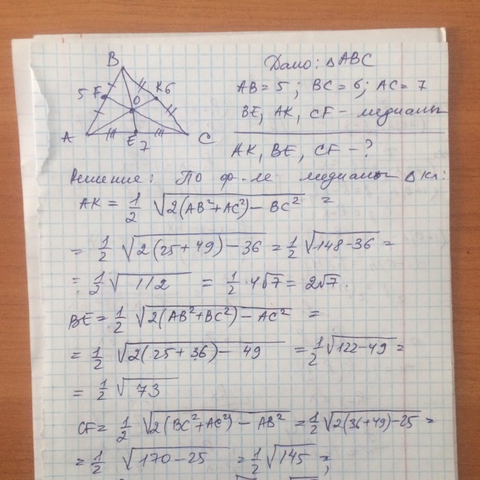 B
Дано: △ABC
5 F K 6
AB = 5 ; BC = 6; AC = 7
O
BE, AK, CF – медианы
A E 7 C
AK, BE, CF – ?
Решение: По ф-ле медианы △кл:
AK = 1/2 √(2(AB²+AC²) – BC²) =
= 1/2 √(2(25+49) – 36) = 1/2 √(148–36) =
= 1/2 √112 = 1/2 · 4√7 = 2√7.
BE = 1/2 √(2(AB²+BC²) – AC²) =
= 1/2 √(2(25+36) – 49) = 1/2 √(122–49) =
= 1/2 √73
CF = 1/2 √(2(BC²+AC²) – AB²) = 1/2 √(2(36+49)–25) =
= 1/2 √(170–25) = 1/2 √145 ;